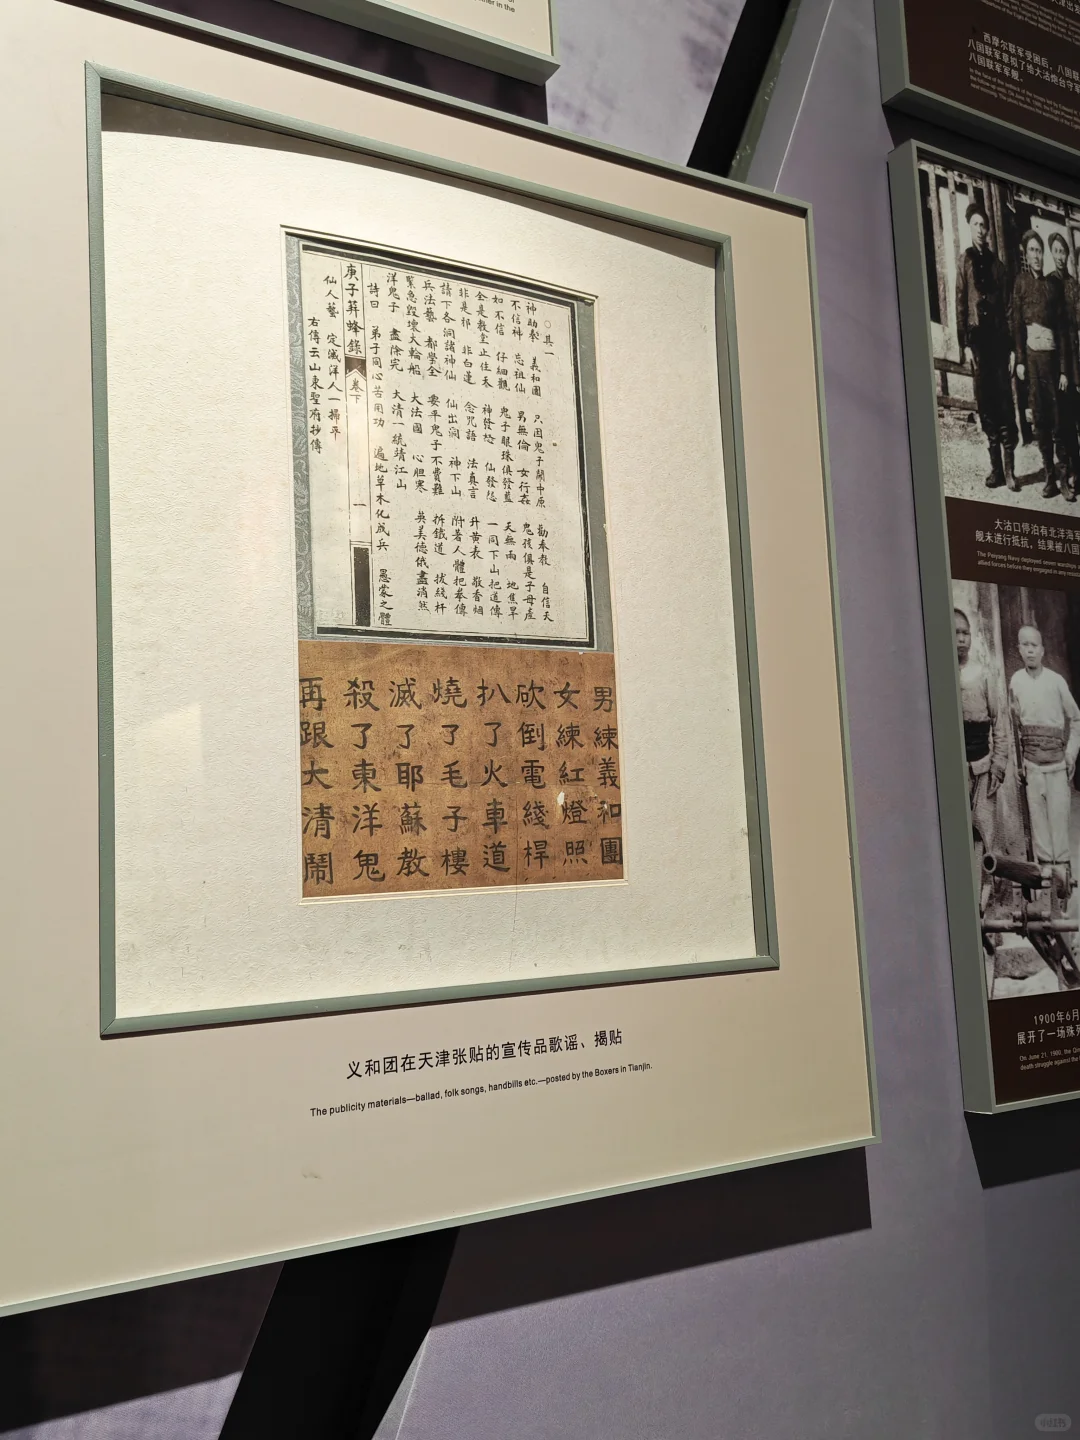 ○其一
神助拳 義和團 只因鬼子鬧中原 勸奉教 自信天
不信神 忘祖仙 男無倫 女行姦 鬼孩俱是子母產
如不信 仔細觀 鬼子眼珠俱發藍 天無雨 地焦旱
全是教堂止住天 神發怒 仙發怨 一同下山把道傳
非是邪 非白蓮 念咒語 法真言 升黃表 敬香烟
請下各洞諸神仙 仙出洞 神下山 附著人體把拳傳
兵法藝 都學全 要平鬼子不費難 拆鐵道 拔綫杆
緊急毀壞大輪船 大法國 心胆寒 英美德俄盡消然
洋鬼子 盡除完 大清一統靖江山
詩曰 弟子同心苦用功 遍地草木化成兵 愚蒙之體
庚子荓蜂錄 卷下 一
仙人藝 定滅洋人一掃平
右傳云山東聖府抄傳
男練義和團
女練紅燈照
砍倒電綫桿
扒了火車道
燒了毛子樓
滅了耶蘇教
殺了東洋鬼
再跟大清鬧
义和团在天津张贴的宣传品歌谣、揭贴
The publicity materials—ballad, folk songs, handbills etc.—posted by the Boxers in Tianjin.
西摩尔联军受困后，八国联
八国联军草拟了给大沽炮台守军
八国联军军舰.
大沽口停泊有北洋海军
舰未进行抵抗，结果被八国
The Peiyang Navy deployed seven warships
allied forces before they engaged in any
1900年6月
展开了一场殊死
On June 21, 1900, the
death struggle against the
小红书